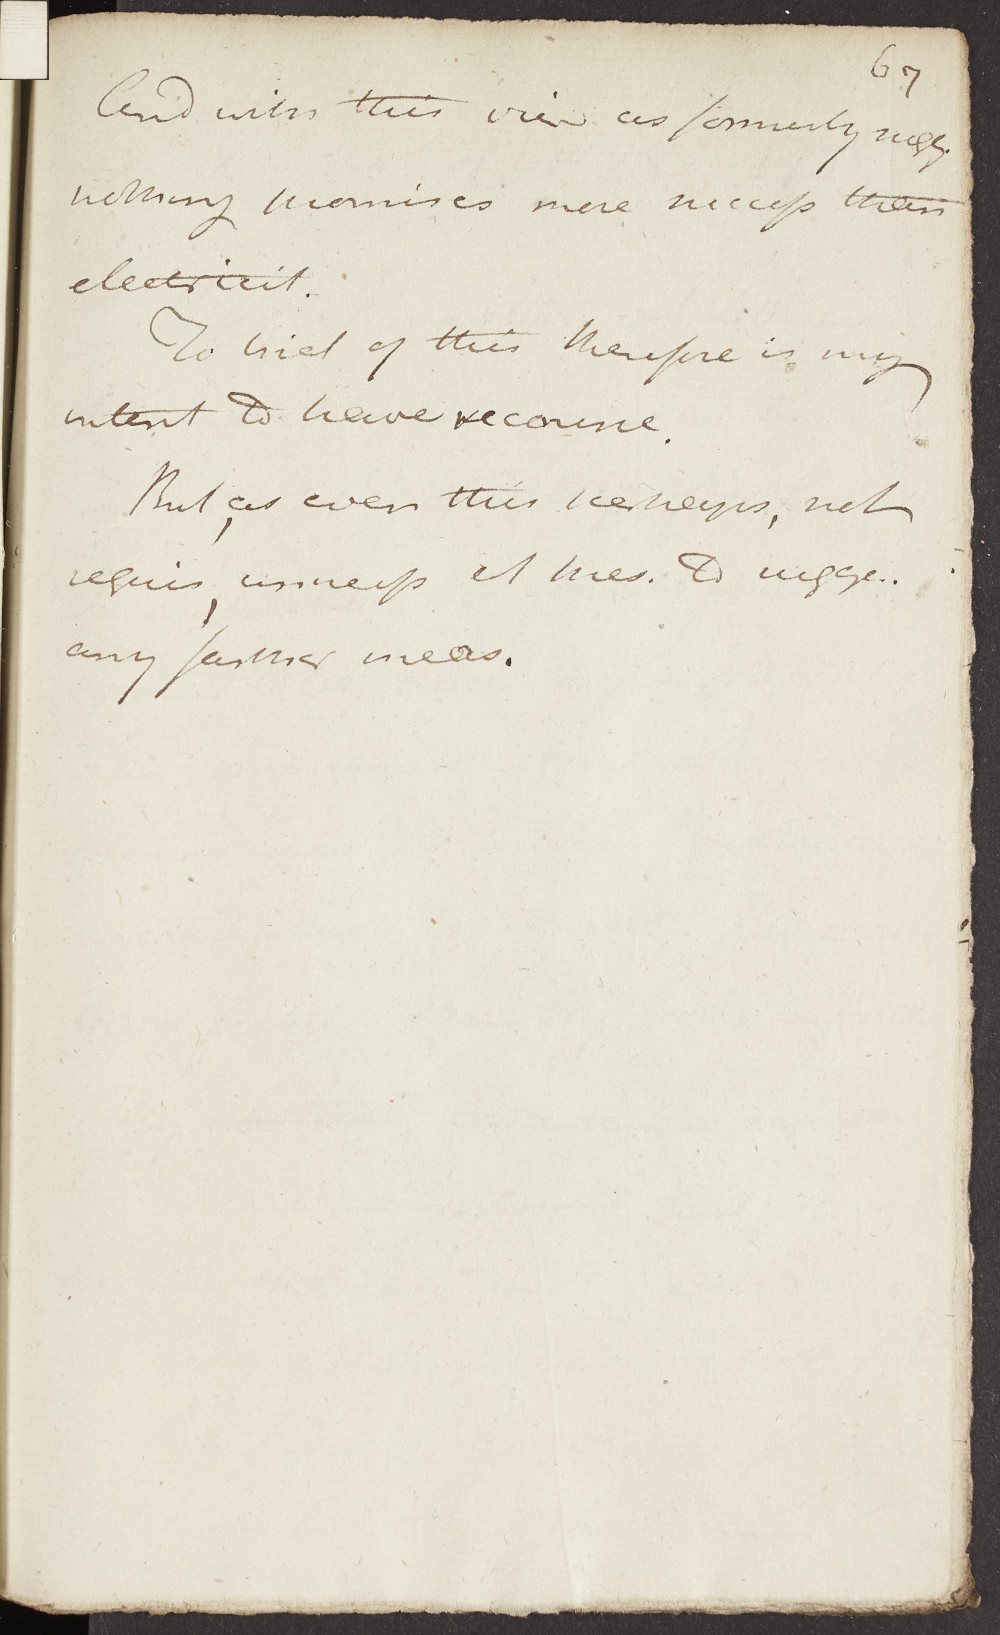 67
And with this view as formerly sugg.
nothing promises more success than
electricit.
To trial of this therefore is my
intent to have recourse.
But, as even this perhaps, not
requis, unnecess at pres. to sugge..
any farther meas.